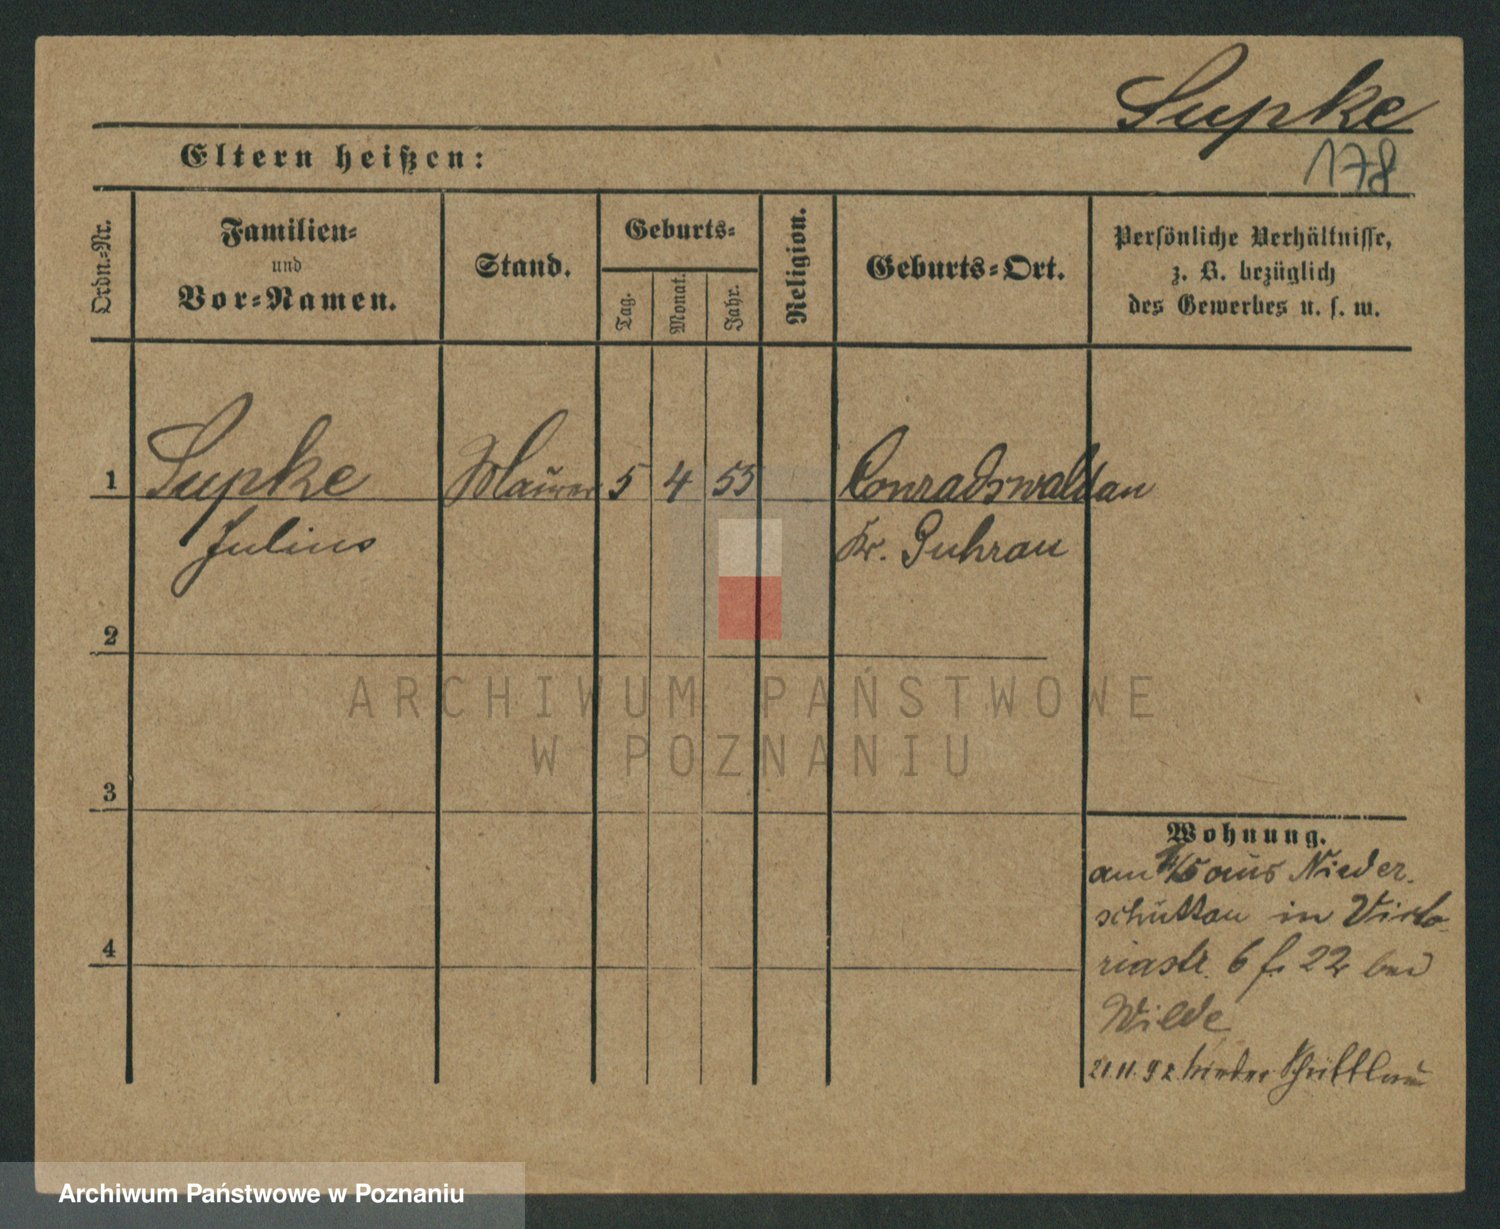 Supke
178
Eltern heißen:
Ordn.-Nr.
Familien-
und
Vor-Namen.
Stand.
Geburts-
Tag.
Monat.
Jahr.
Religion.
Geburts-Ort.
Persönliche Verhältnisse,
z. B. bezüglich
des Gewerbes u. s. w.
1
Supke
Julius
Maurer
5
4
55
Conradswaldau
Kr. Guhrau
2
3
4
Wohnung.
am aus Nieder-
schüttau in Victo-
riastr. 6 f. 22 bei
Wilde
21.11.92.
ARCHIWUM PAŃSTWOWE
W POZNANIU
Archiwum Państwowe w Poznaniu